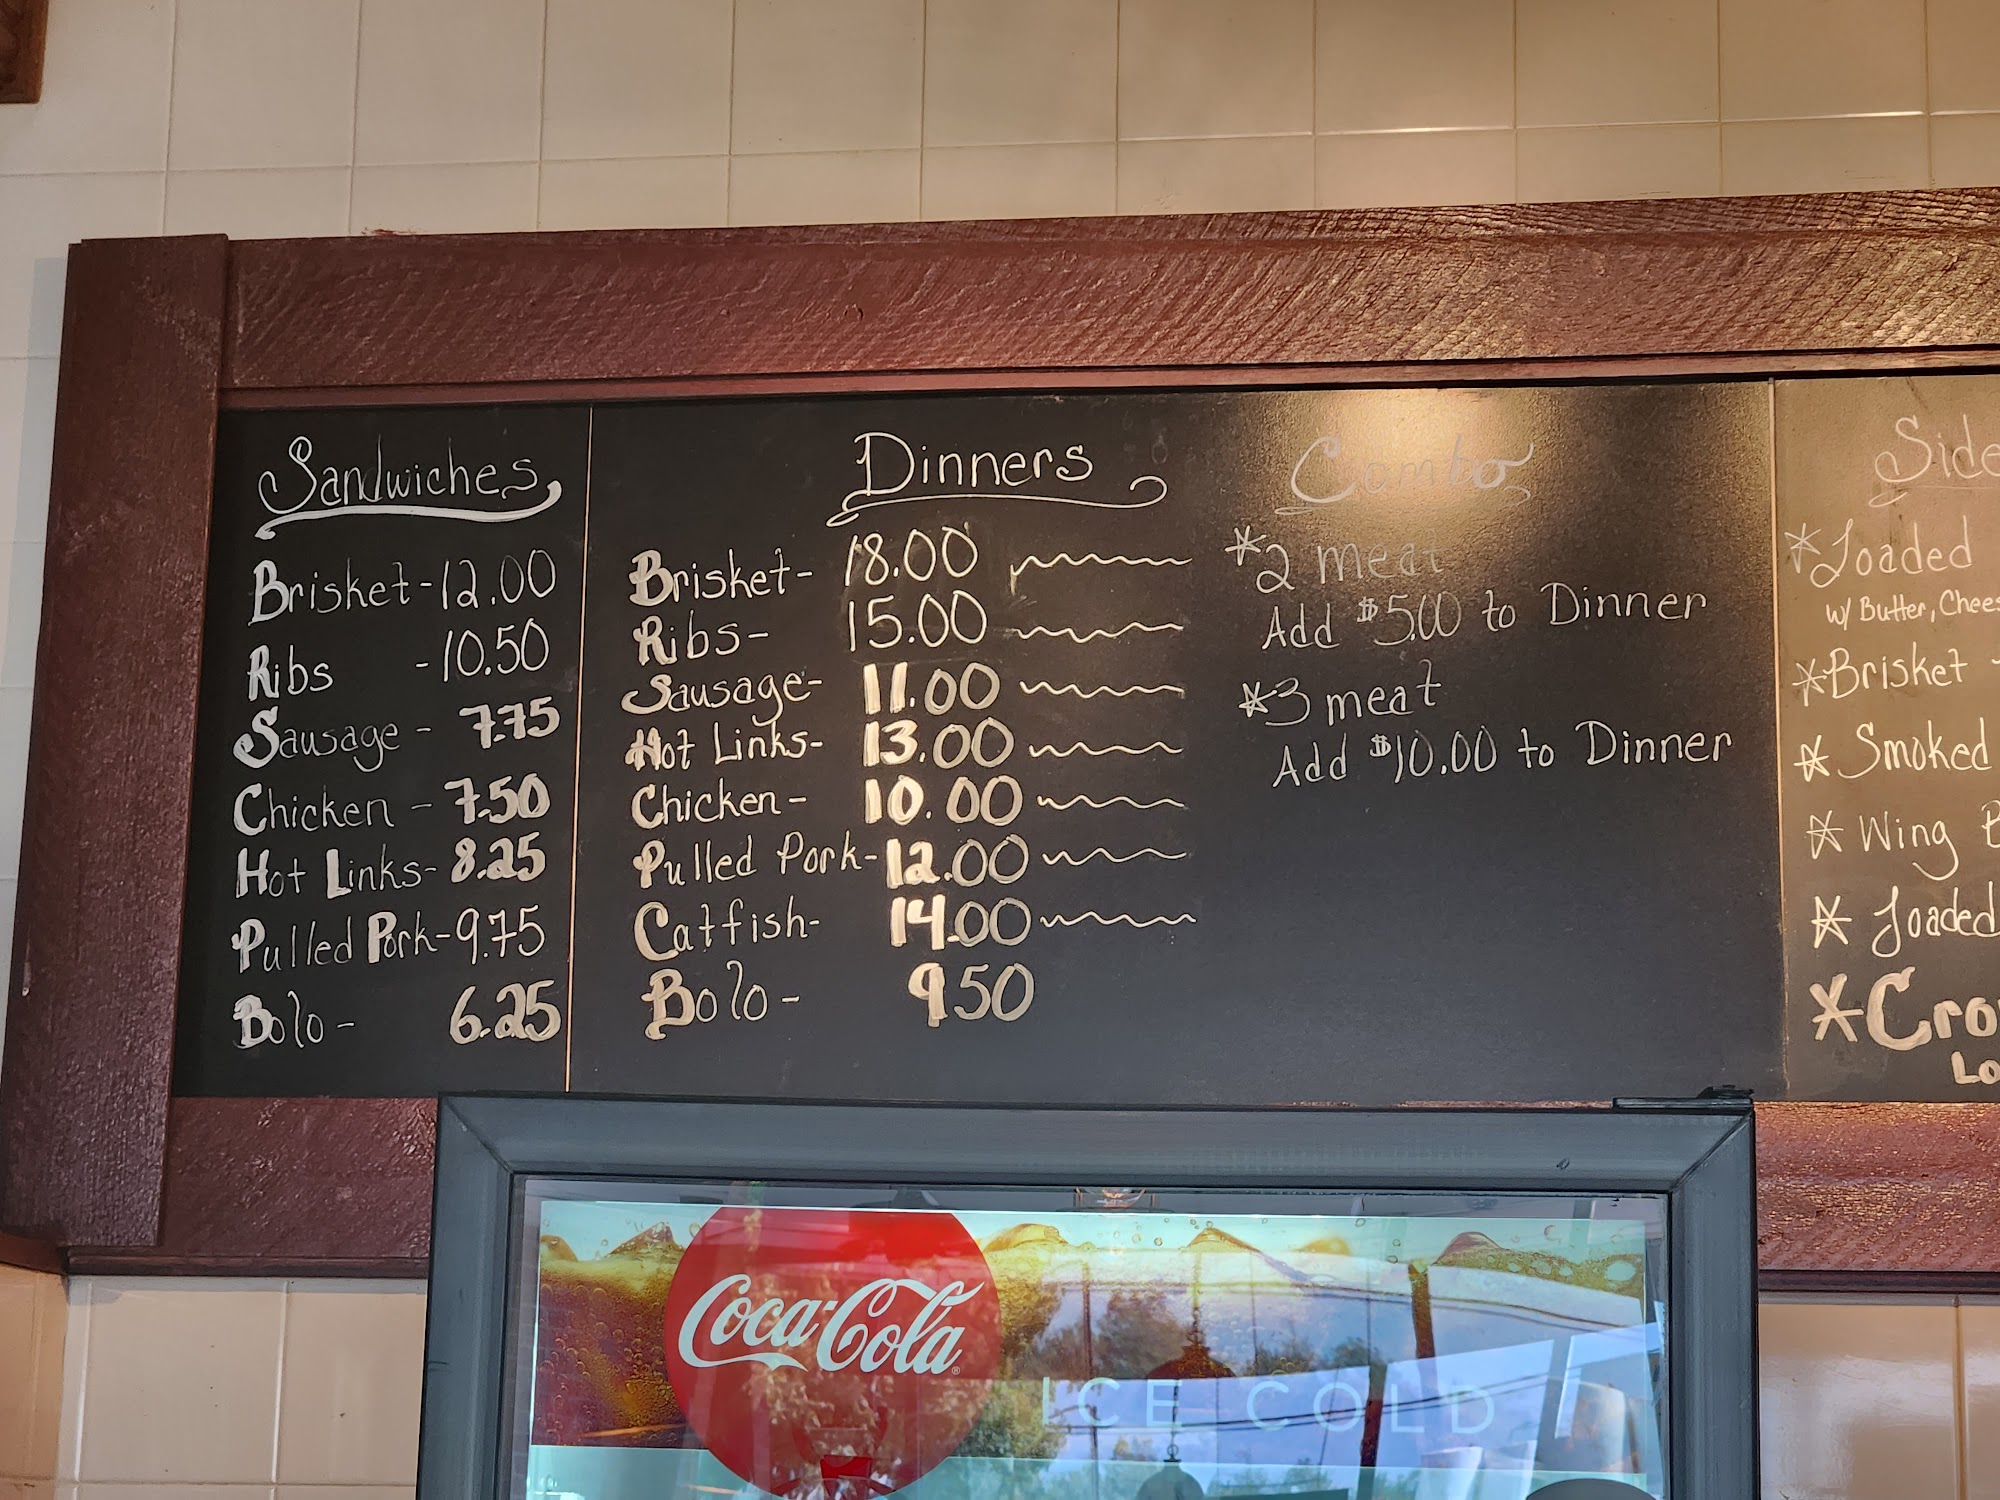 Sandwiches
Brisket - 12.00
Ribs - 10.50
Sausage - 7.75
Chicken - 7.50
Hot Links - 8.25
Pulled Pork - 9.75
Bolo - 6.25
Dinners
Brisket - 18.00
Ribs - 15.00
Sausage - 11.00
Hot Links - 13.00
Chicken - 10.00
Pulled Pork - 12.00
Catfish - 14.00
Bolo - 9.50
Combo
*2 meat
Add $5.00 to Dinner
*3 meat
Add $10.00 to Dinner
Side
*Loaded
w/ Butter, Chees
*Brisket -
* Smoked
* Wing B
* Loaded
*Cro
Lo
Coca-Cola
ICE COLD